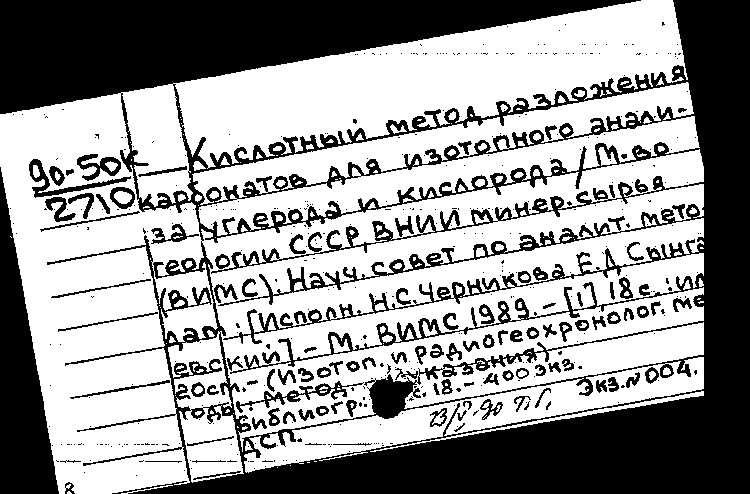 90-50к
2710
Кислотный метод разложения
карбонатов для изотопного анали-
за углерода и кислорода / М-во
геологии СССР, ВНИИ минер. сырья
(ВИМС); Науч. совет по аналит. мето-
дам; [Исполн. Н.С. Черникова, Е.Д. Сынга
евский]. - М.: ВИМС, 1989. - [1] 18 с.: ил
20см. - (Изотоп. и радиогеохронолог. ме
тоды: метод. указания).
Библиогр.: с. 18. - 400 экз.
ДСП.
Экз. N 004.
8